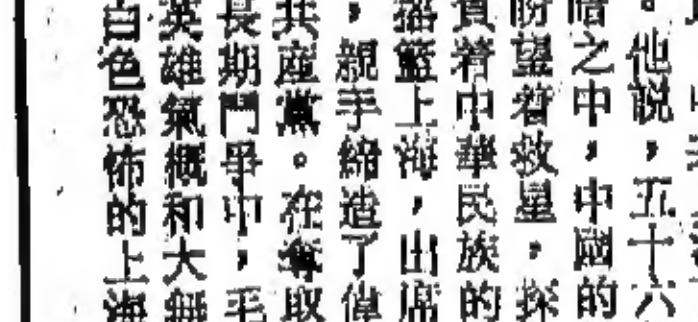 。他说，五十六
暗之中，中國的
盼望着救星，探
負着中華民族的
搖籃上海，出席
，親手締造了偉
共産黨。在奪取
長期鬥爭中，毛
英雄氣概和大無
白色恐怖的上海